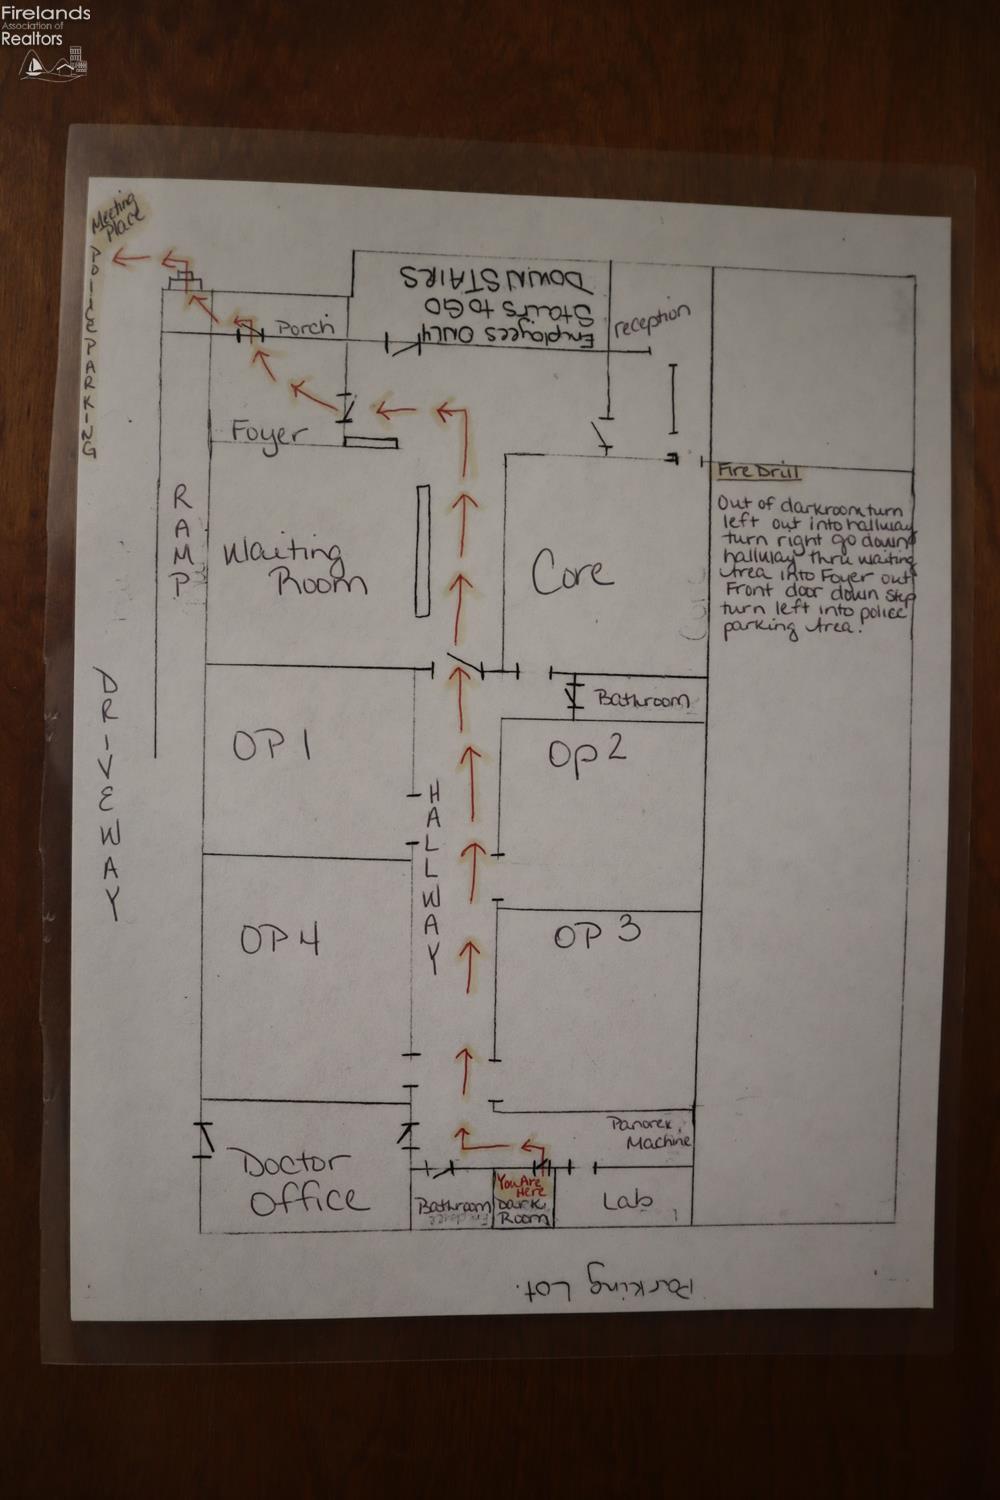 Firelands
Association of
Realtors
Meeting
Place
POLICE PARKING
DOWNSTAIRS
Stairs to GO
Employees ONLY
reception
Porch
Foyer
RAMP
Waiting
Room
Core
Fire Drill
Out of darkroom turn
left out into hallway
turn right go down
hallway thru waiting
Area into Foyer out
Front door down step
turn left into police
parking Area.
DRIVEWAY
Bathroom
OP 1
Op 2
HALLWAY
OP 4
OP 3
Panorex
Machine
Doctor
Office
Bathroom
You Are
Here
Dark
Room
Lab
Parking Lot.